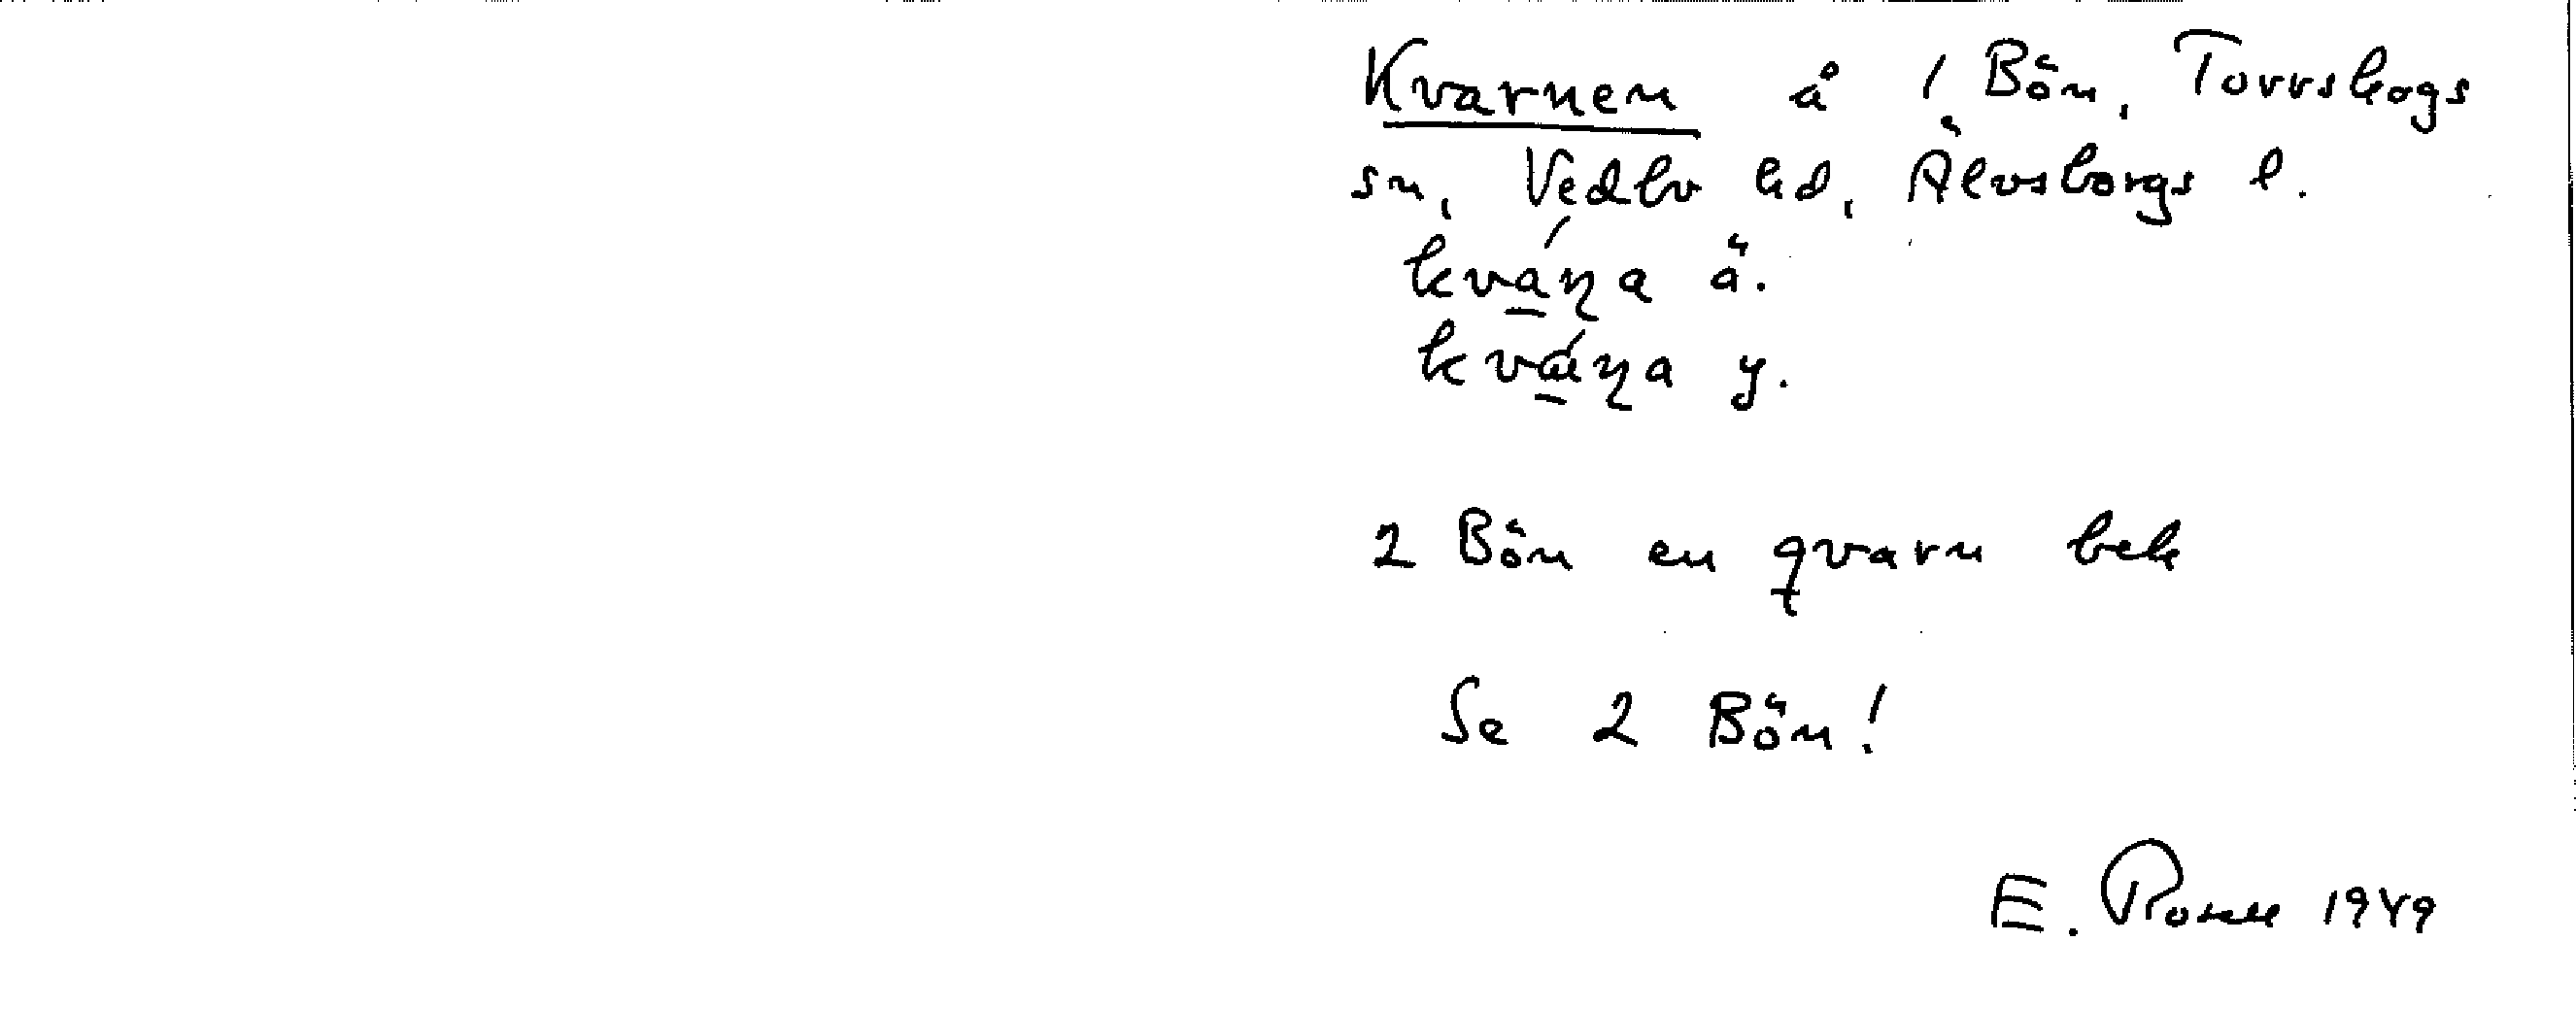 Kvarnen å 1 Bön, Torrskogs
sn, Vedbo hd, Älvsborgs l.
kvá̠ɳa ä.
kvá̠ɳa y.
2 Bön en qvarn bek
Se 2 Bön!
E. 1949